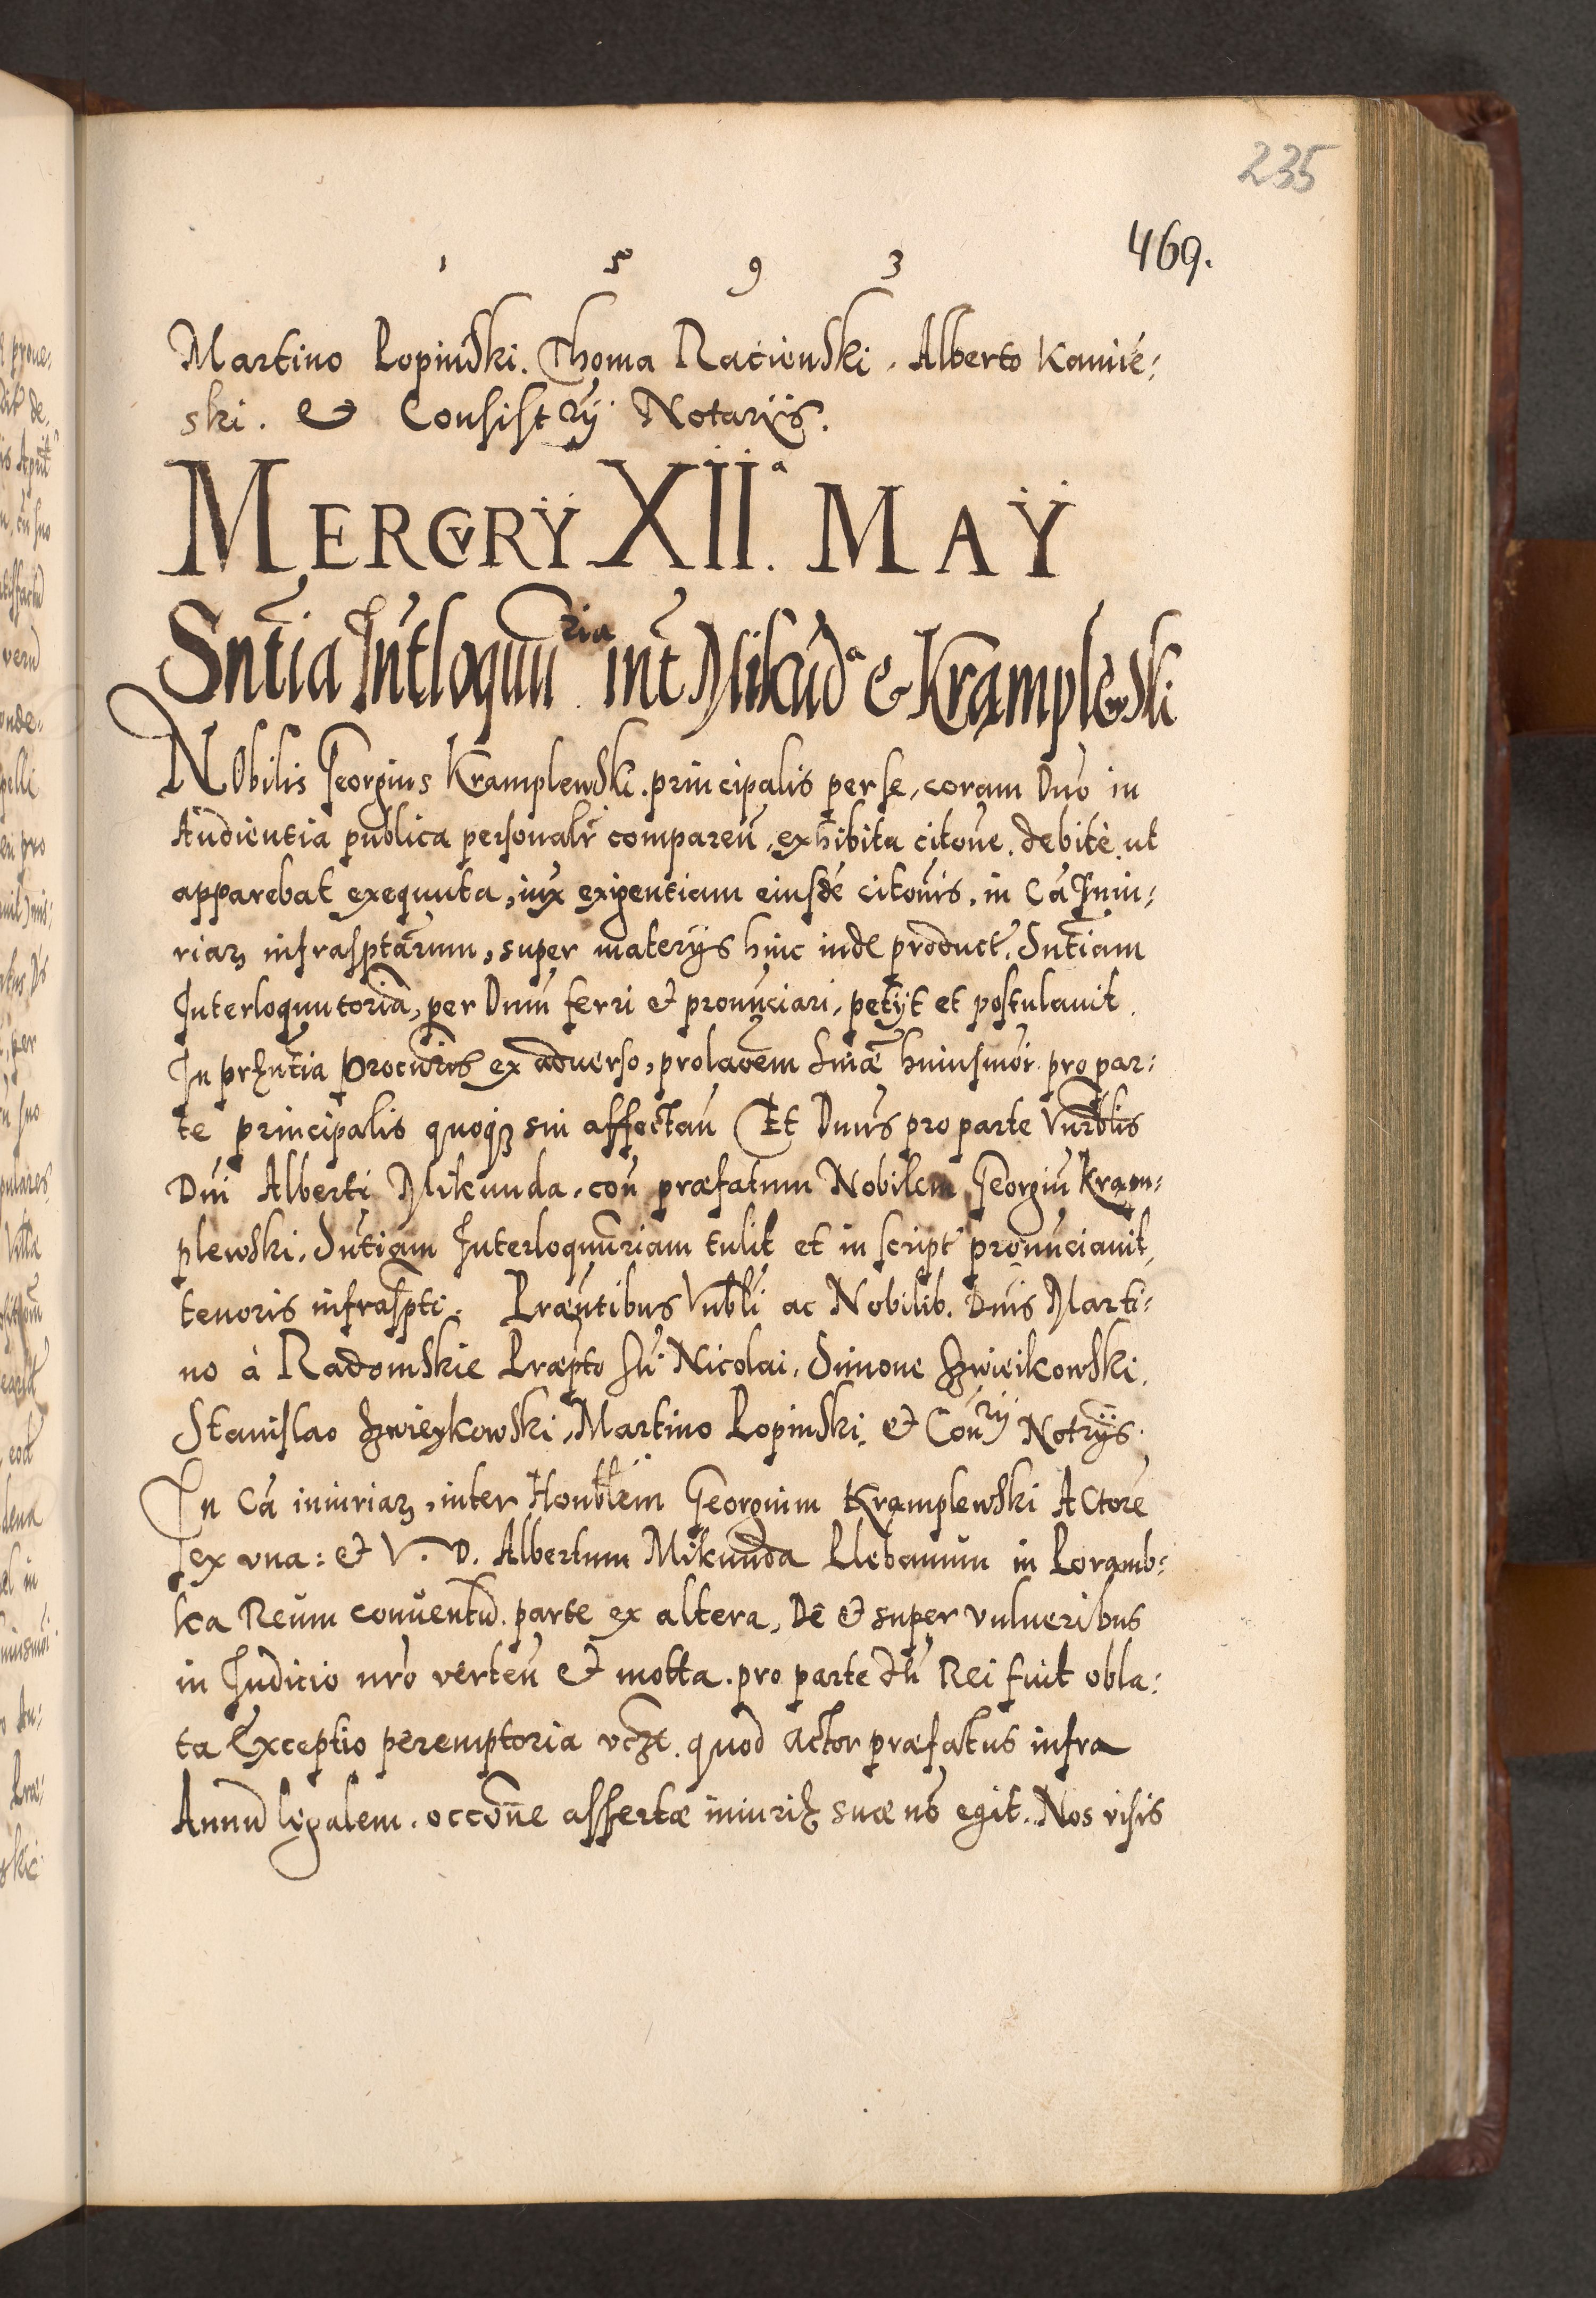 235
469.
1 5 9 3
Martino Lopinski. Thoma Racienski. Alberto Kamie:
ski. & Consistrÿ Notarÿs.
MERCVRŸ XII.ª MAŸ
Sntia Intloquuria int Mikuda & Kramplewski
NObilis Georgius Kramplewski. principalis per se, coram Dno in
Audientia publica personalr compareñ, exhibita citoñe. debitè ut
apparebat exequuta, iux exigentiam eiusdẽ citoñis. in Cã Iniu:
riaꝝ infrasptarum, super materÿs hinc inde product. Sntiam
Interloquutoriã, per Dnm ferri et pronũciari, petÿt et postulauit.
In prñtia procuris ex aduerso, prolaoẽm Sniæ huiusmõi pro par:
te principalis quoqꝫ sui affectañ Et Dnus pro parte Vnrblis
Dñi Alberti Mikunda. coñ præfatum Nobilem Georgiũ Kram:
plewski. Sntiam Interloquuriam tulit et in script pronũciauit,
tenoris infraspti. Præntibus Vnbli ac Nobilib. Dnis Marti:
no à Radomskie Præpto Sti Nicolai. Simone Szwieikowski.
Stanislao Szwieykowski, Martino Lopinski. et Conrÿ Notrÿs.
In Cã iniuriaꝝ, inter Honblem Georgium Kramplewski ACtorẽ
ex vna: et V. D. Albertum Mikunda Plebanum in Poramb:
ka Reum conuentũ. parte ex altera, De et super vulneribus
in Iudicio nr̃o verteñ et motta. pro parte dti Rei fuit obla:
ta Exceptio peremptoria vczt. quod actor præfatus infra
Annũ legalem. occoñe assertæ iniuriæ suæ nõ egit. Nos visis